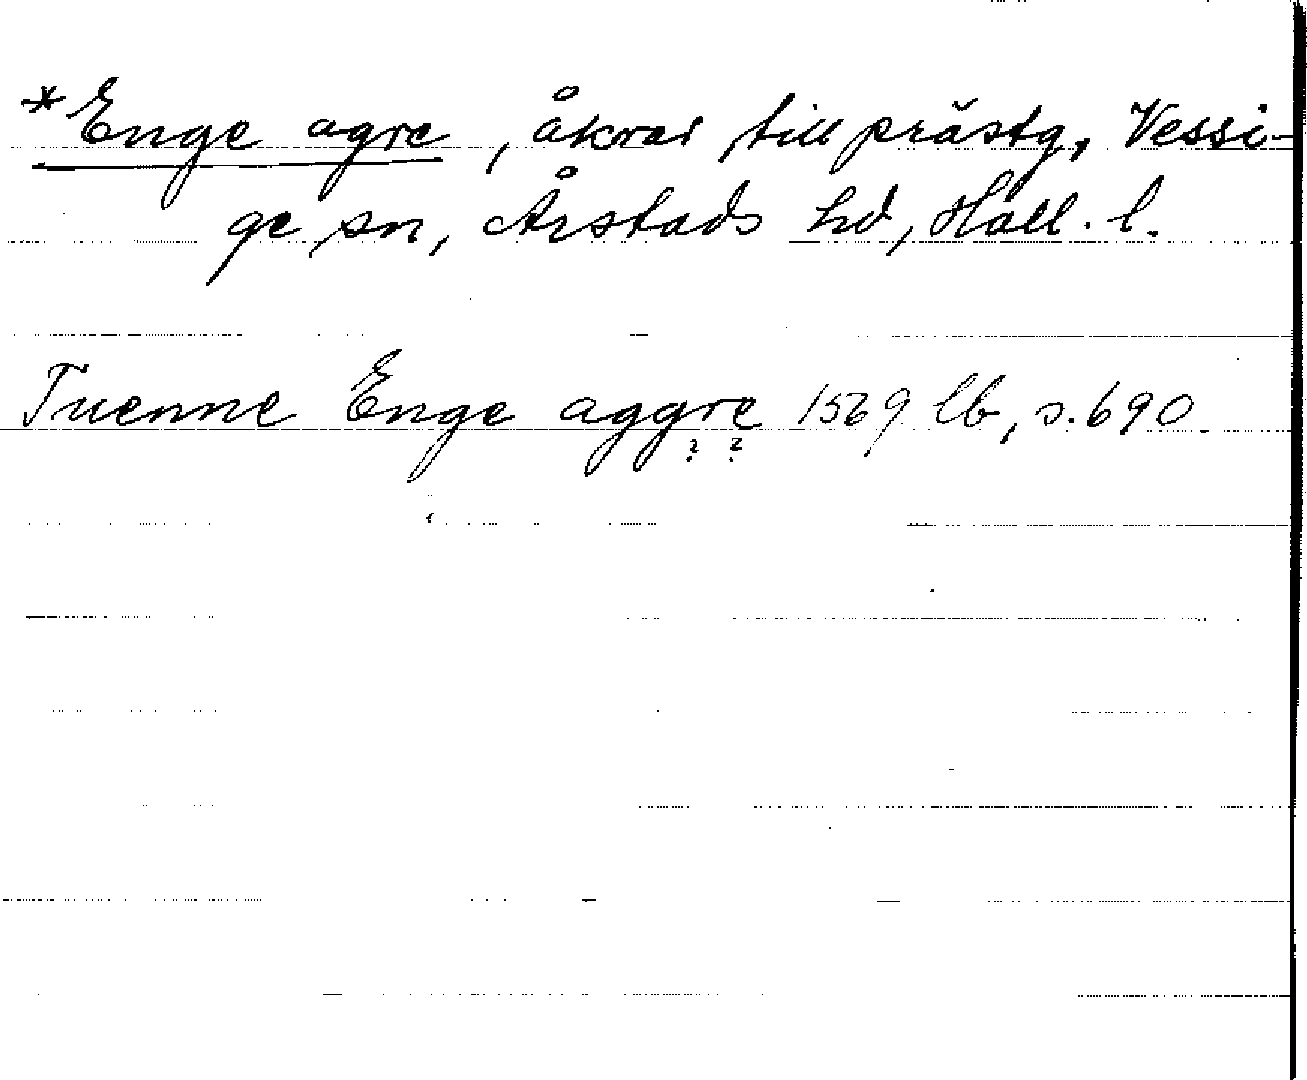 *Enge agre, åkrar till prästg, Vessi-
ge sn, Årstads hd, Hall. l.
Tuenne Enge aggre 1569 lb, s. 690.
? ?